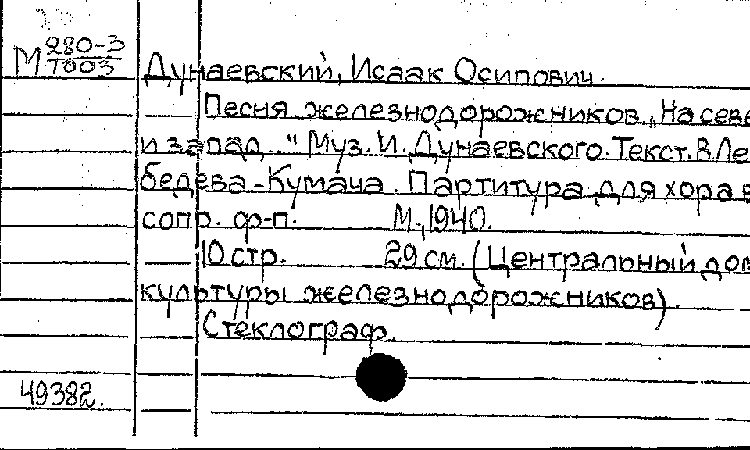 М 280-3
1003
Дунаевский, Исаак Осипович.
Песня железнодорожников „На севе
и запад.." Муз. И. Дунаевского. Текст. В. Ле
бедева-Кумача. Партитура для хора в
сопр. ф-п. М., 1940.
10 стр. 29 см. (Центральный дом
культуры железнодорожников).
Стеклограф.
49382.